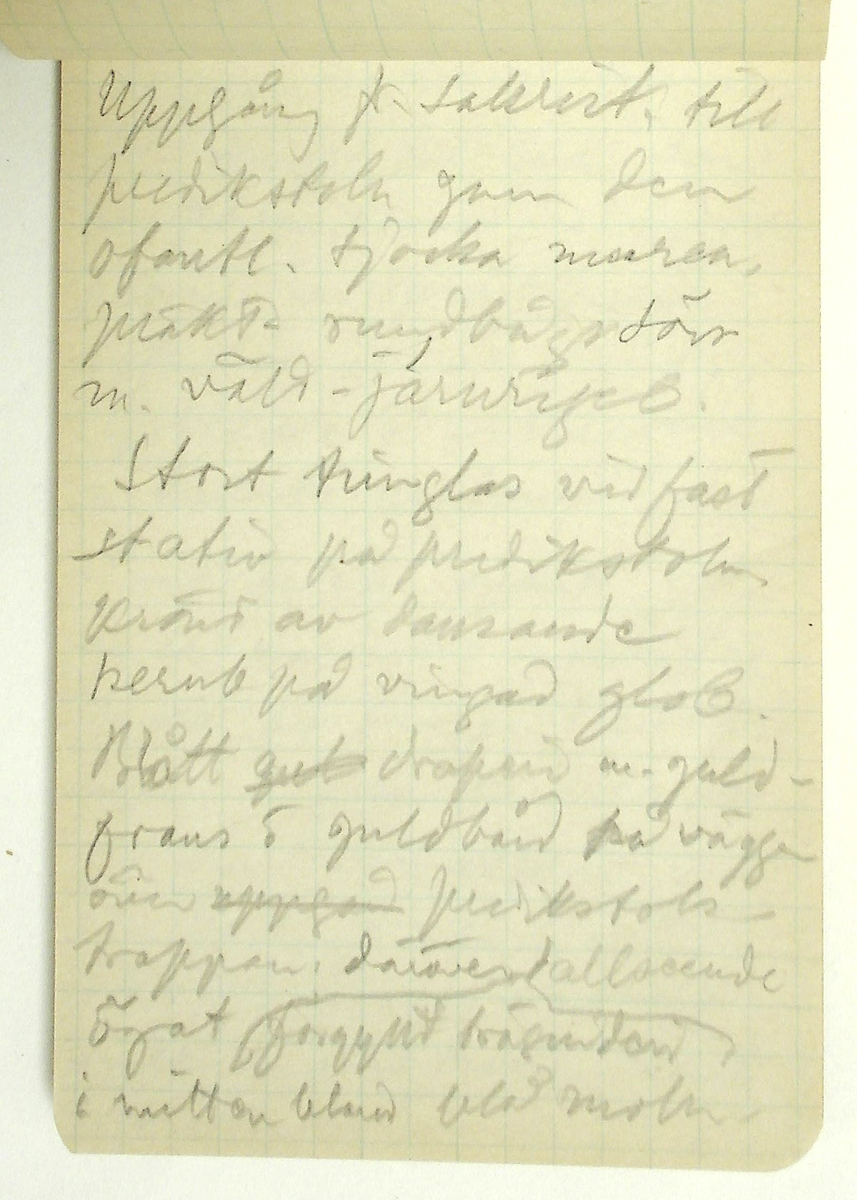 Uppgång fr. sakrist. till
predikstoln gnm den
ofantl. tjocka muren,
präkt. rundbågsdörr
m. väld. järnrigel.
Stort timglas vid fast
stativ på predikstoln
krönt av dansande
kerub på vingad glob.
Blått gul draperi m. guld-
frans o guldbård på väggen
över uppgång predikstols-
trappan. däröver allseende
ögat (förgylld träsnideri)
i mitten bland blå moln